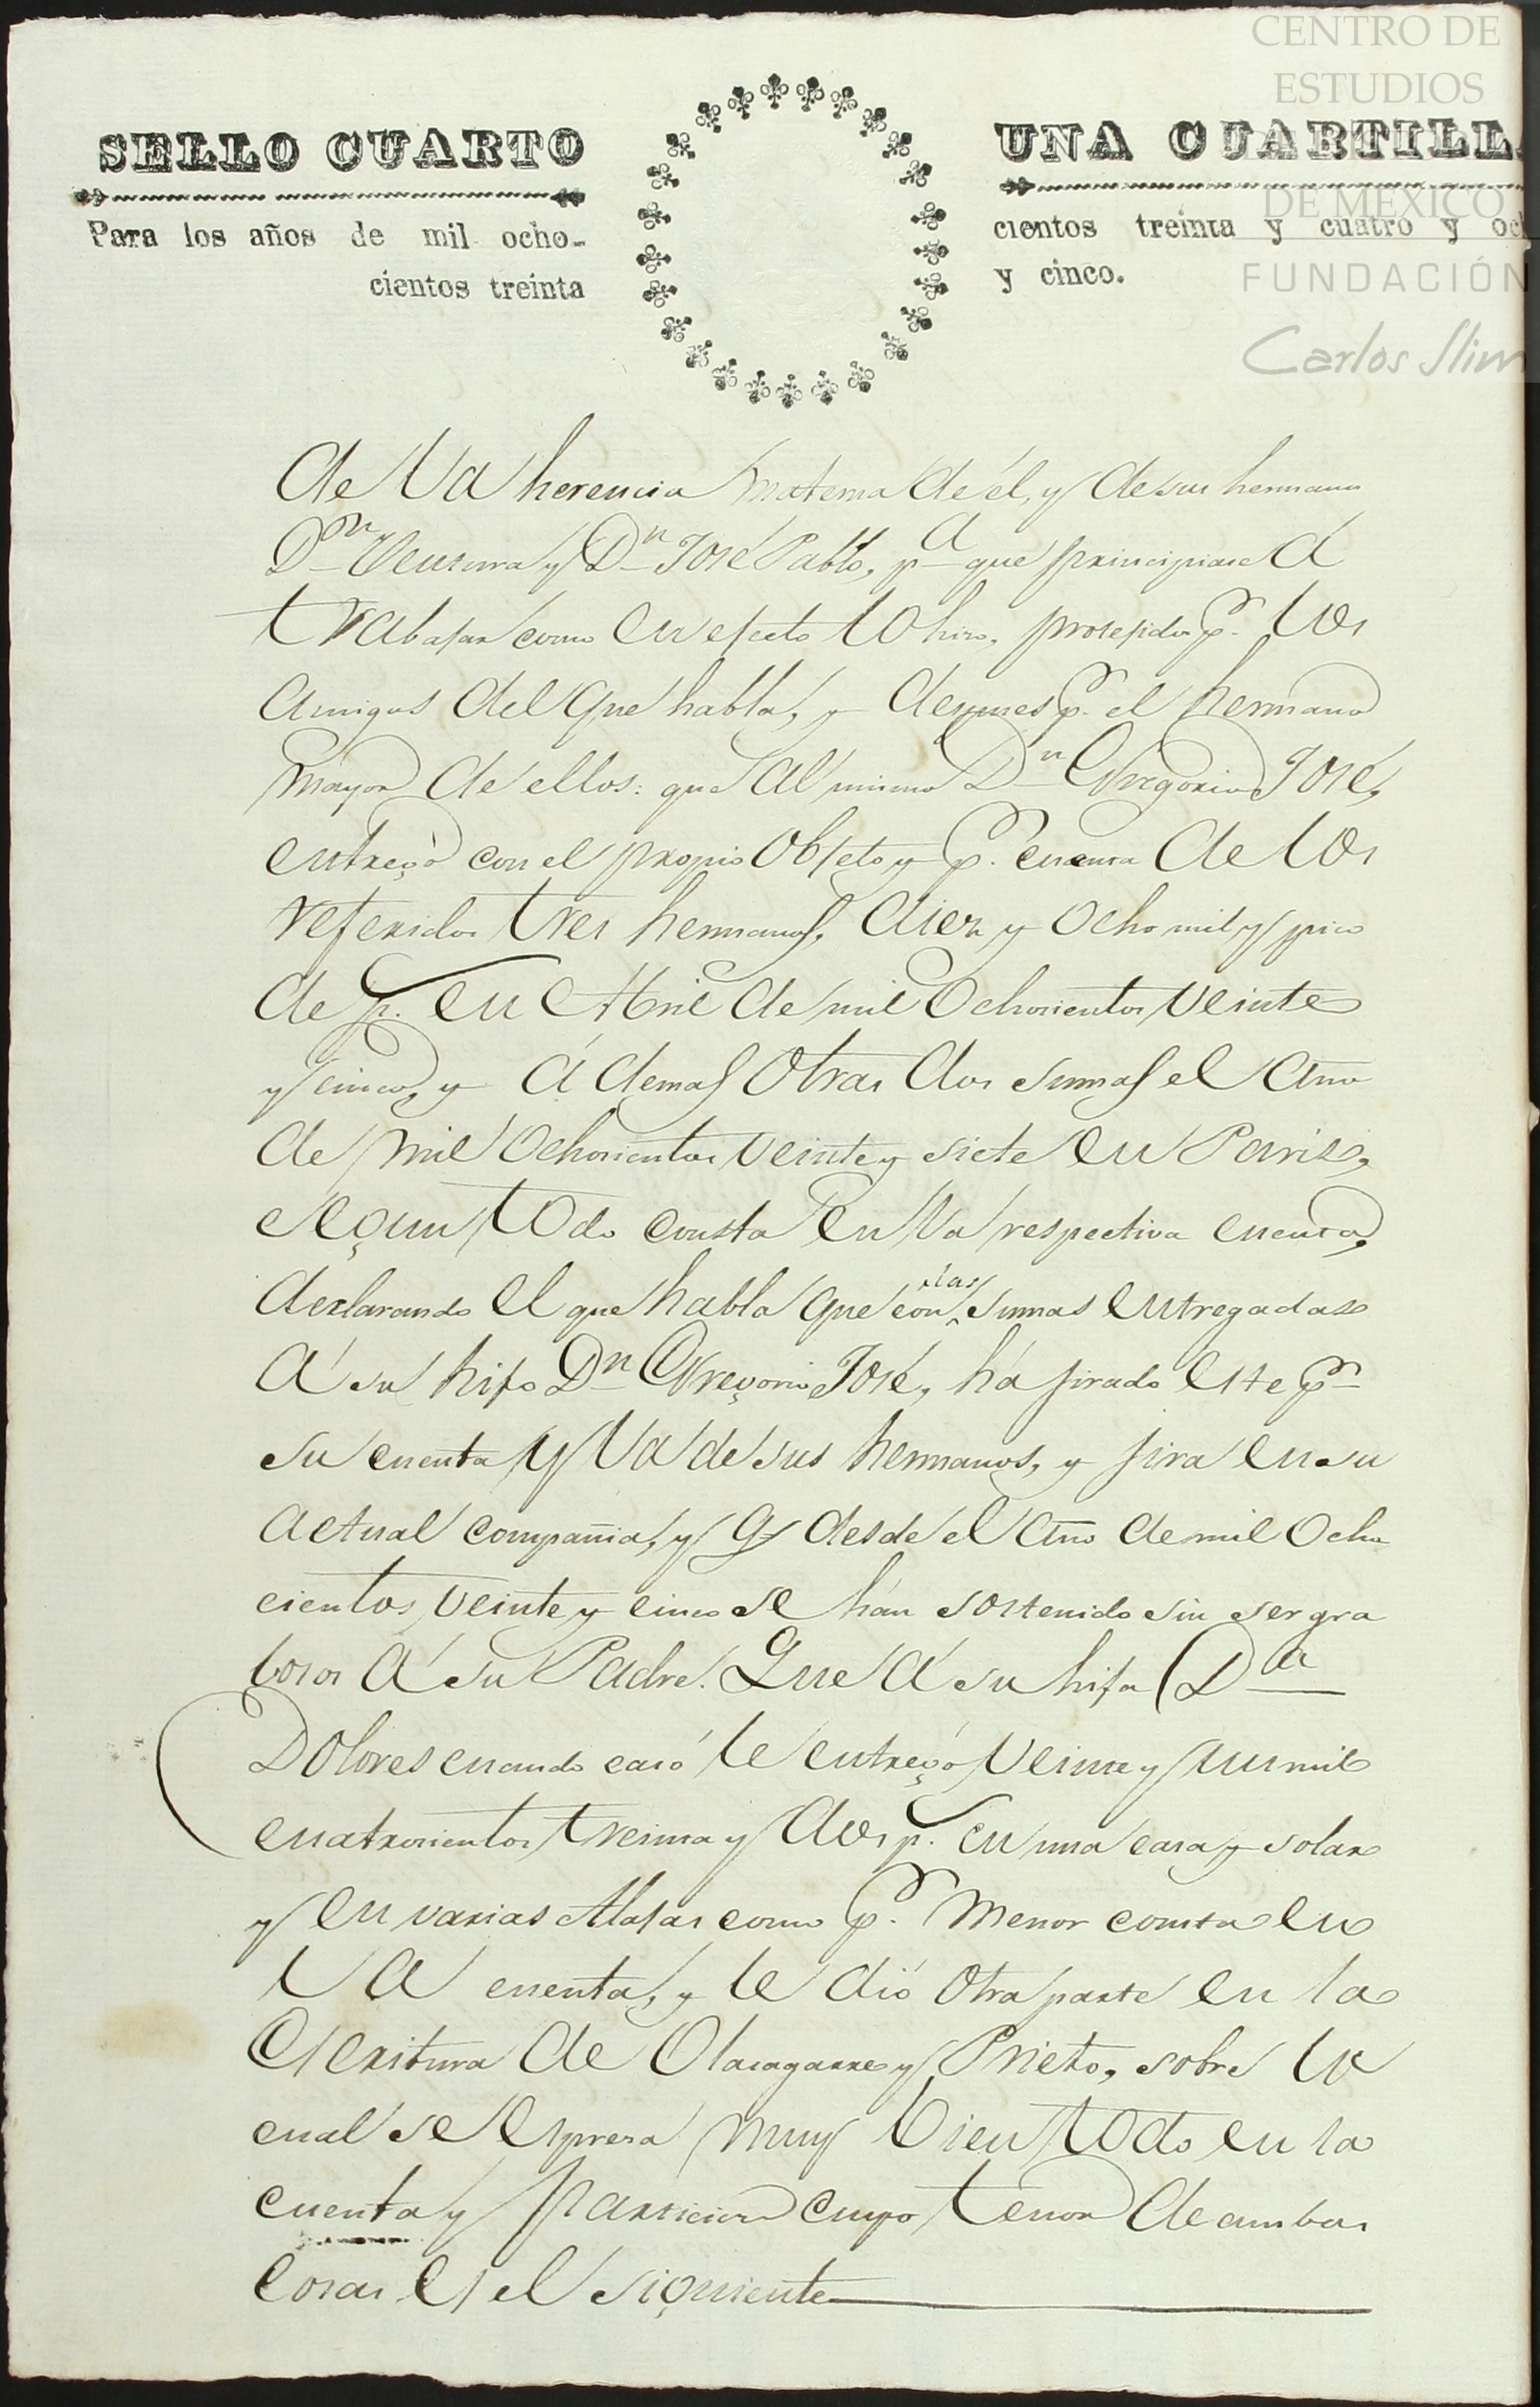 CENTRO DE
ESTUDIOS
DE MÉXICO
FUNDACIÓN
Carlos Slim
SELLO CUARTO
Para los años de mil ocho-
cientos treinta
UNA CUARTILL
cientos treinta y cuatro y och
y cinco.
de la herencia materna de él, y de sus hermanos
Dn Ventura y Dn José Pablo, pa que principiase á
trabajar como en efecto lo hizo, protejido p. los
amigos del que habla, y despues p. el hermano
mayor de ellos: que al mismo Dn Gregorio José,
entregó con el propio objeto y p. cuenta de los
referidos tres hermanos, diez y ocho mil y pico
de p. en Abril de mil ochocientos veinte
y cinco, y á demas otras dos sumas el año
de mil ochocientos veinte y siete en Paris,
segun todo consta en la respectiva cuenta,
declarando el que habla que con las sumas entregadas
á su hijo Dn Gregorio José, há jirado este pr
su cuenta y la de sus hermanos, y jira en su
actual compañia, y q desde el año de mil ocho
cientos veinte y cinco se hán sostenido sin ser gra
bosos á su Padre. Que á su hija Da
Dolores cuando casó le entregó veinte y un mil
cuatrocientos treinta y dos p. en una casa y solar
y en varias Alajas como p. menor consta en
la cuenta, y le dió otra parte en la
Escritura de Olasagarre y Prieto, sobre lo
cual se espresa muy bien todo en la
cuenta y particion cuyo tenor de ambas
cosas es el siguiente